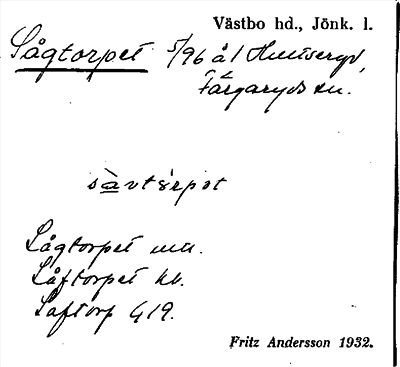 Västbo hd., Jönk. l.
Sågtorpet 5/96 å1 Hultseryd,
Färgaryds sn.
sàvtȯrpət
Sågtorpet
Såftorpet kb.
Saftorp G19.
Fritz Andersson 1932.